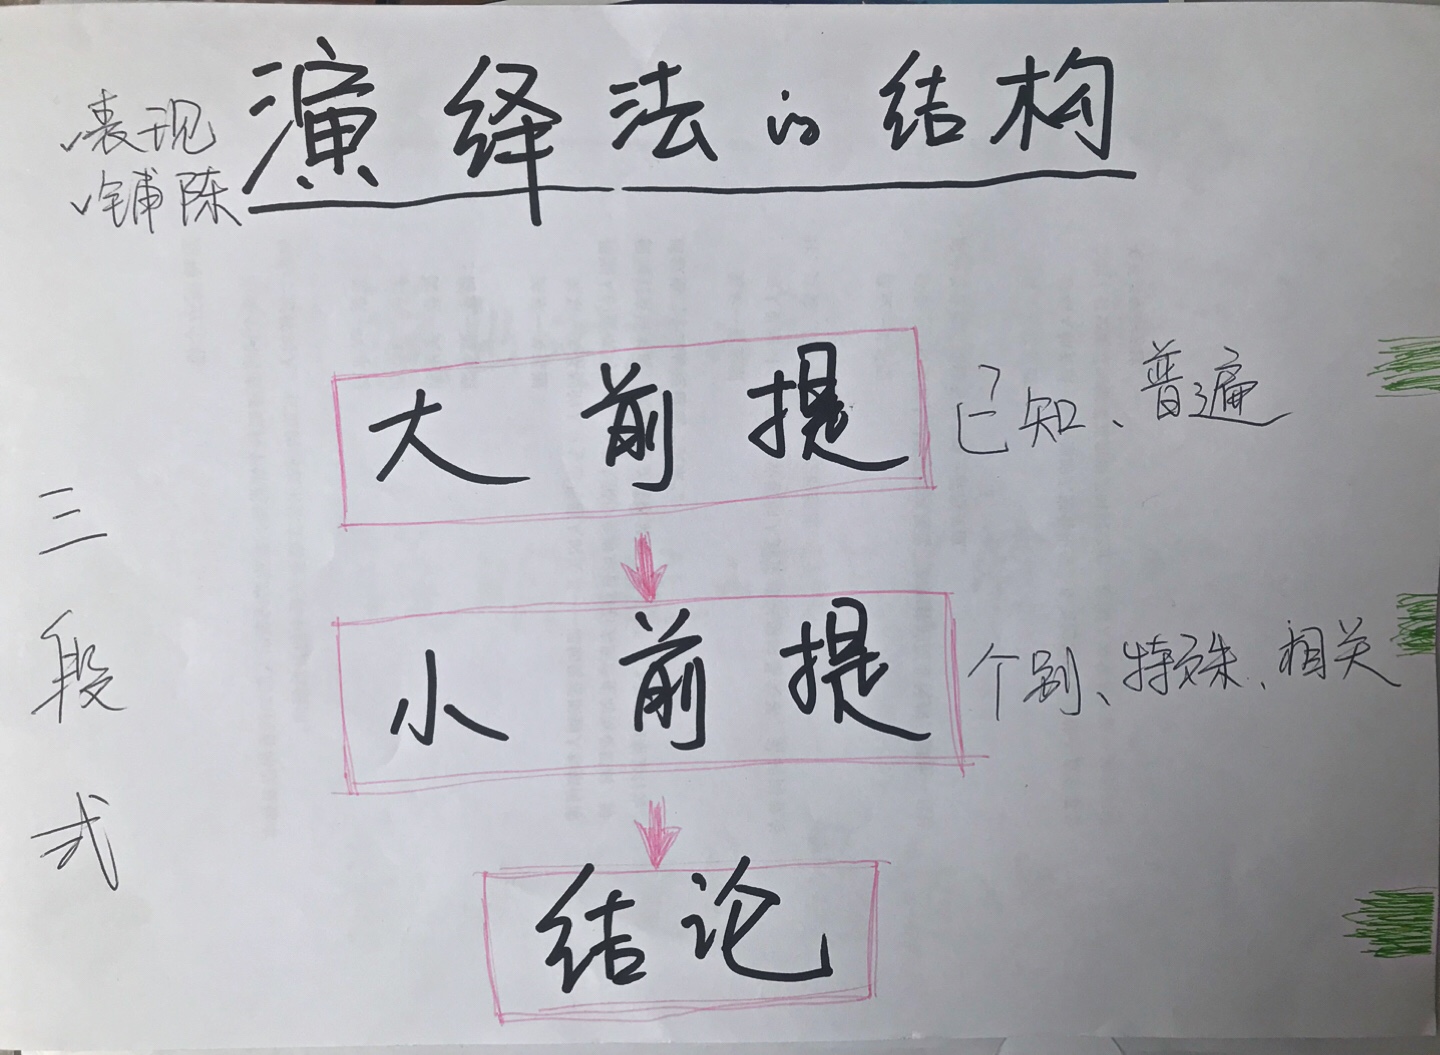 演绎法的结构
表现
铺陈
大前提 已知、普遍
小前提 个别、特殊、相关
结论
三段式